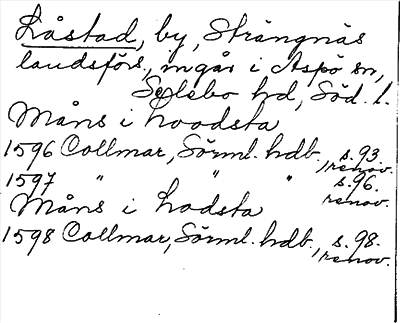 Låstad, by, Strängnäs
landsförs., ingår i Aspö sn,
Selebo hd, Söd. l.
Måns i Loodsta
1596 Collmar, Sörml. hdb., s. 93.
renov.
1597 " " " s. 96.
renov.
Måns i Lodsta
1598 Collmar, Sörml. hdb., s. 98.
renov.